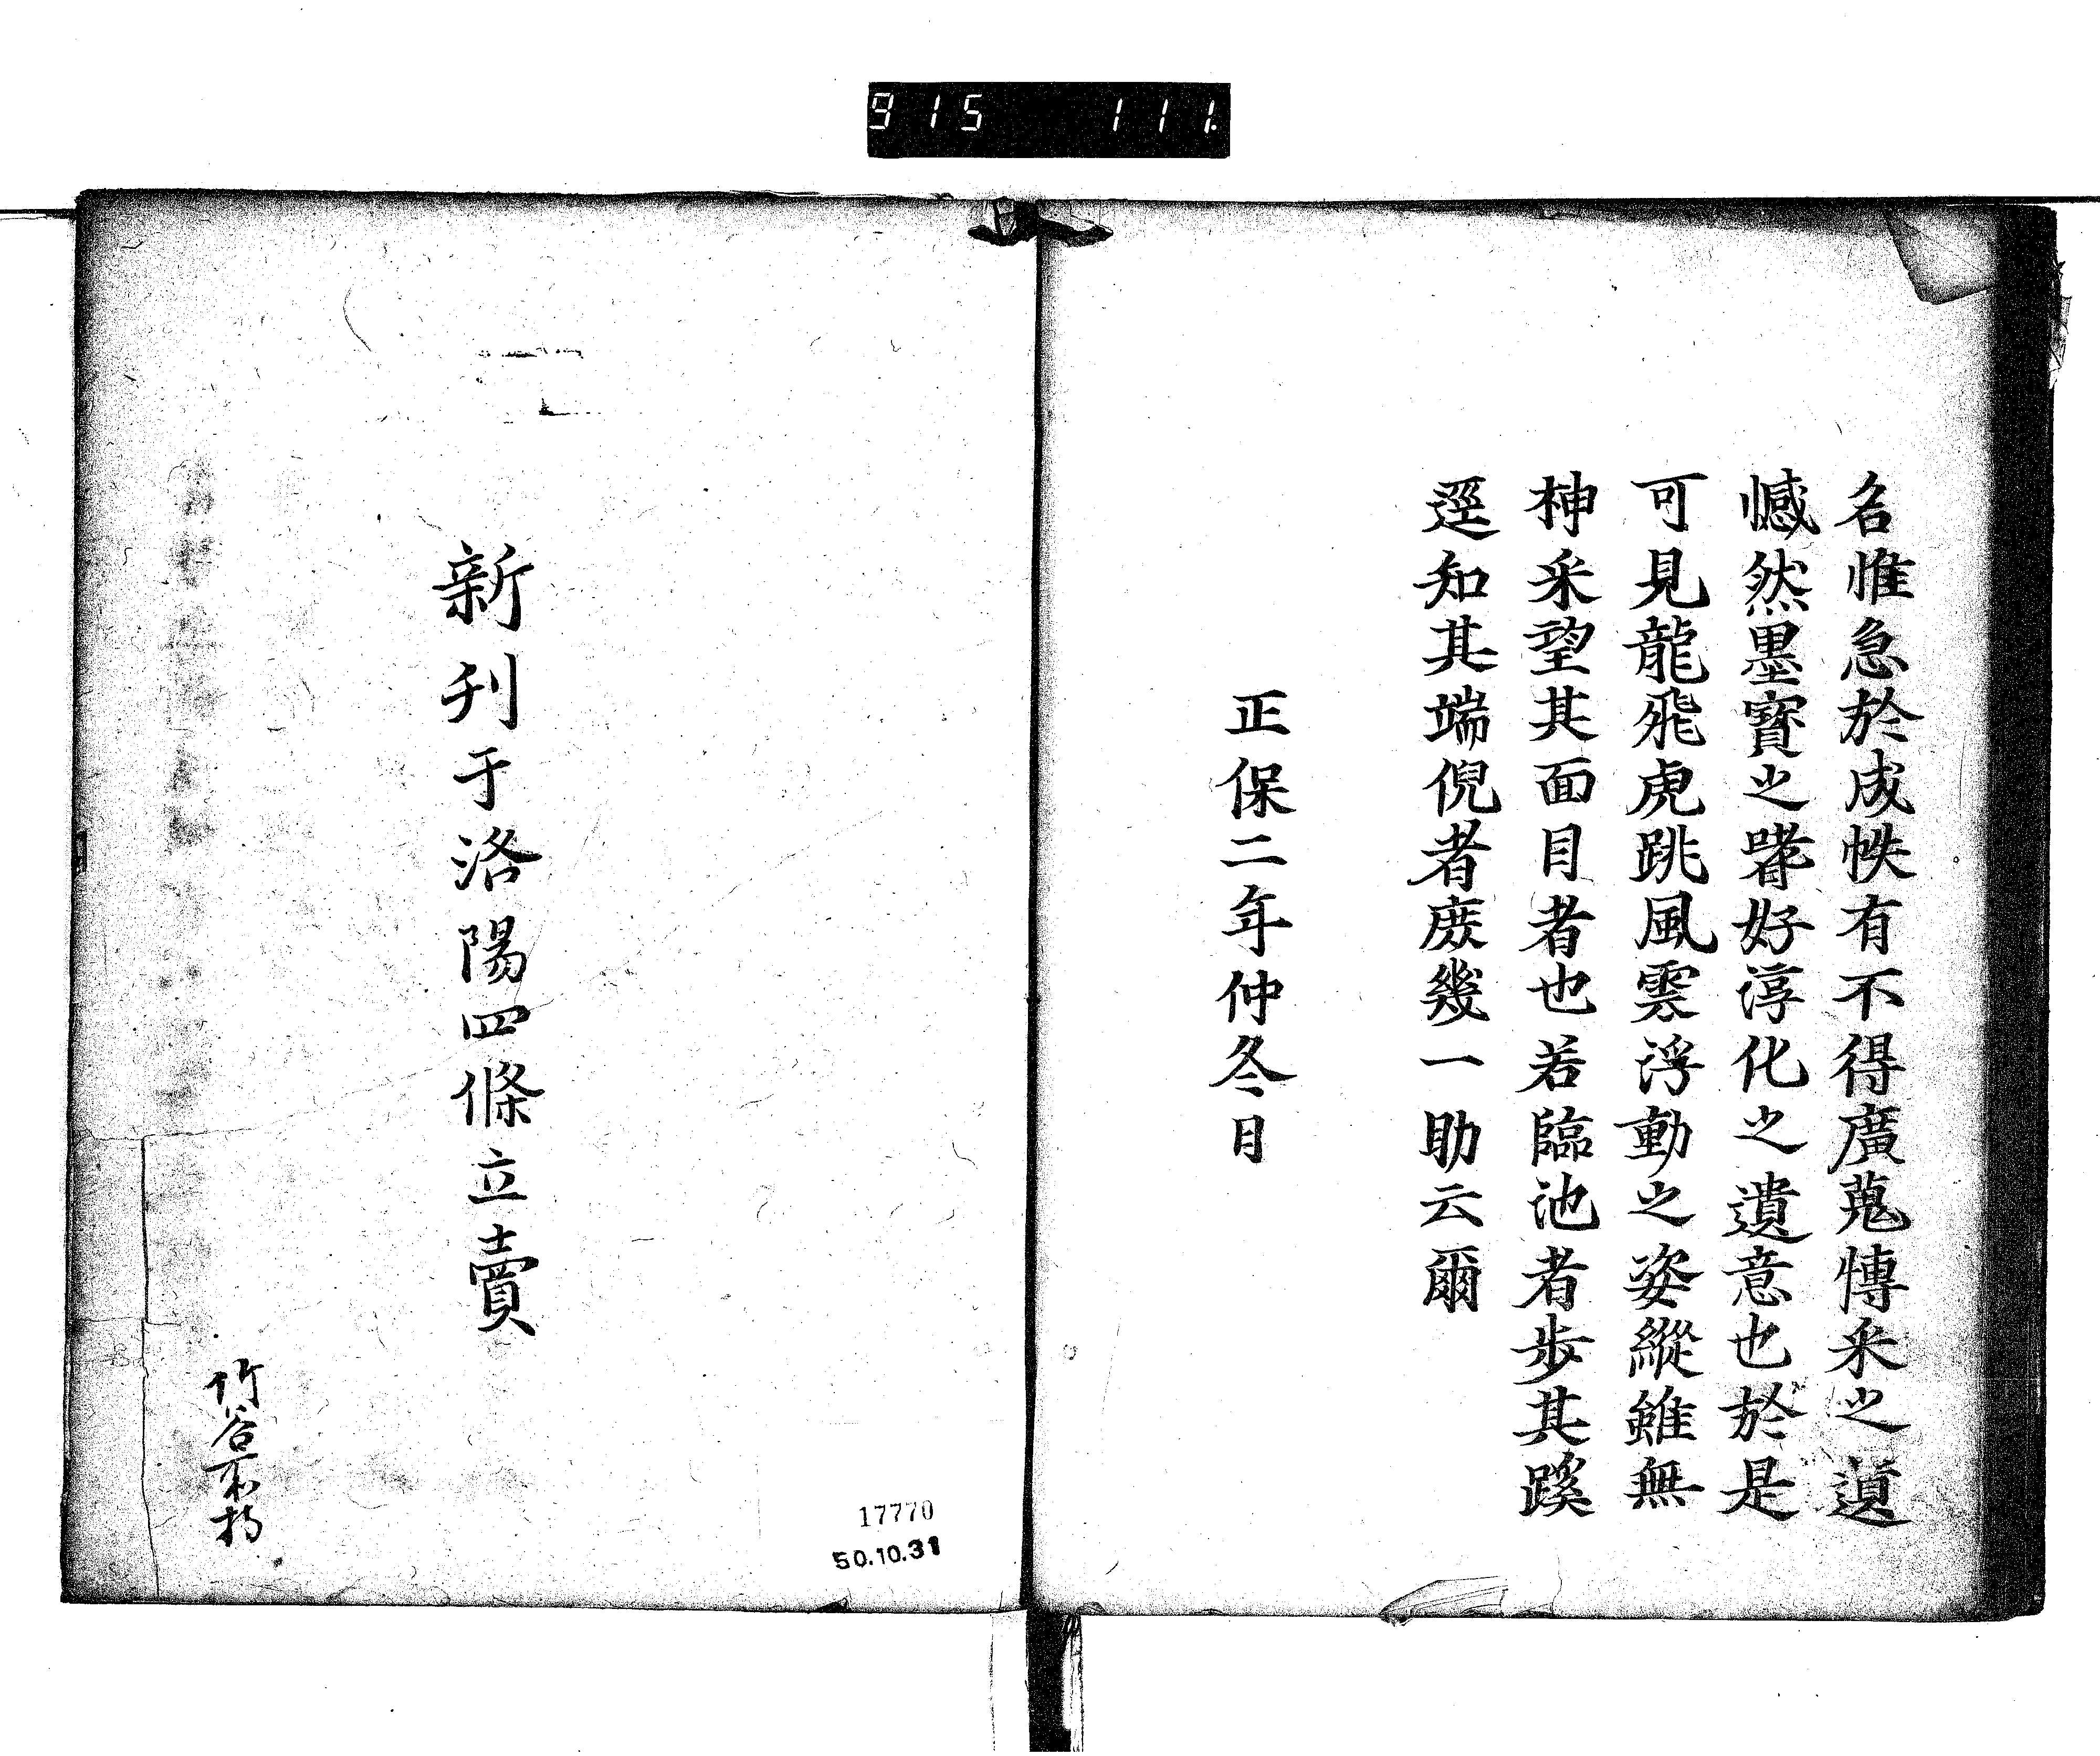 915 111.
名惟急於成帙有不得廣蒐博采之遺
憾然墨寶之嗜好淳化之遺意也於是
可見龍飛虎跳風雲浮動之姿縱雖無
神采望其面目者也若臨池者步其蹊
逕知其端倪者庶幾一助云爾
正保二年仲冬日
新刊于洛陽四條立賣
竹谷
17770
50.10.31